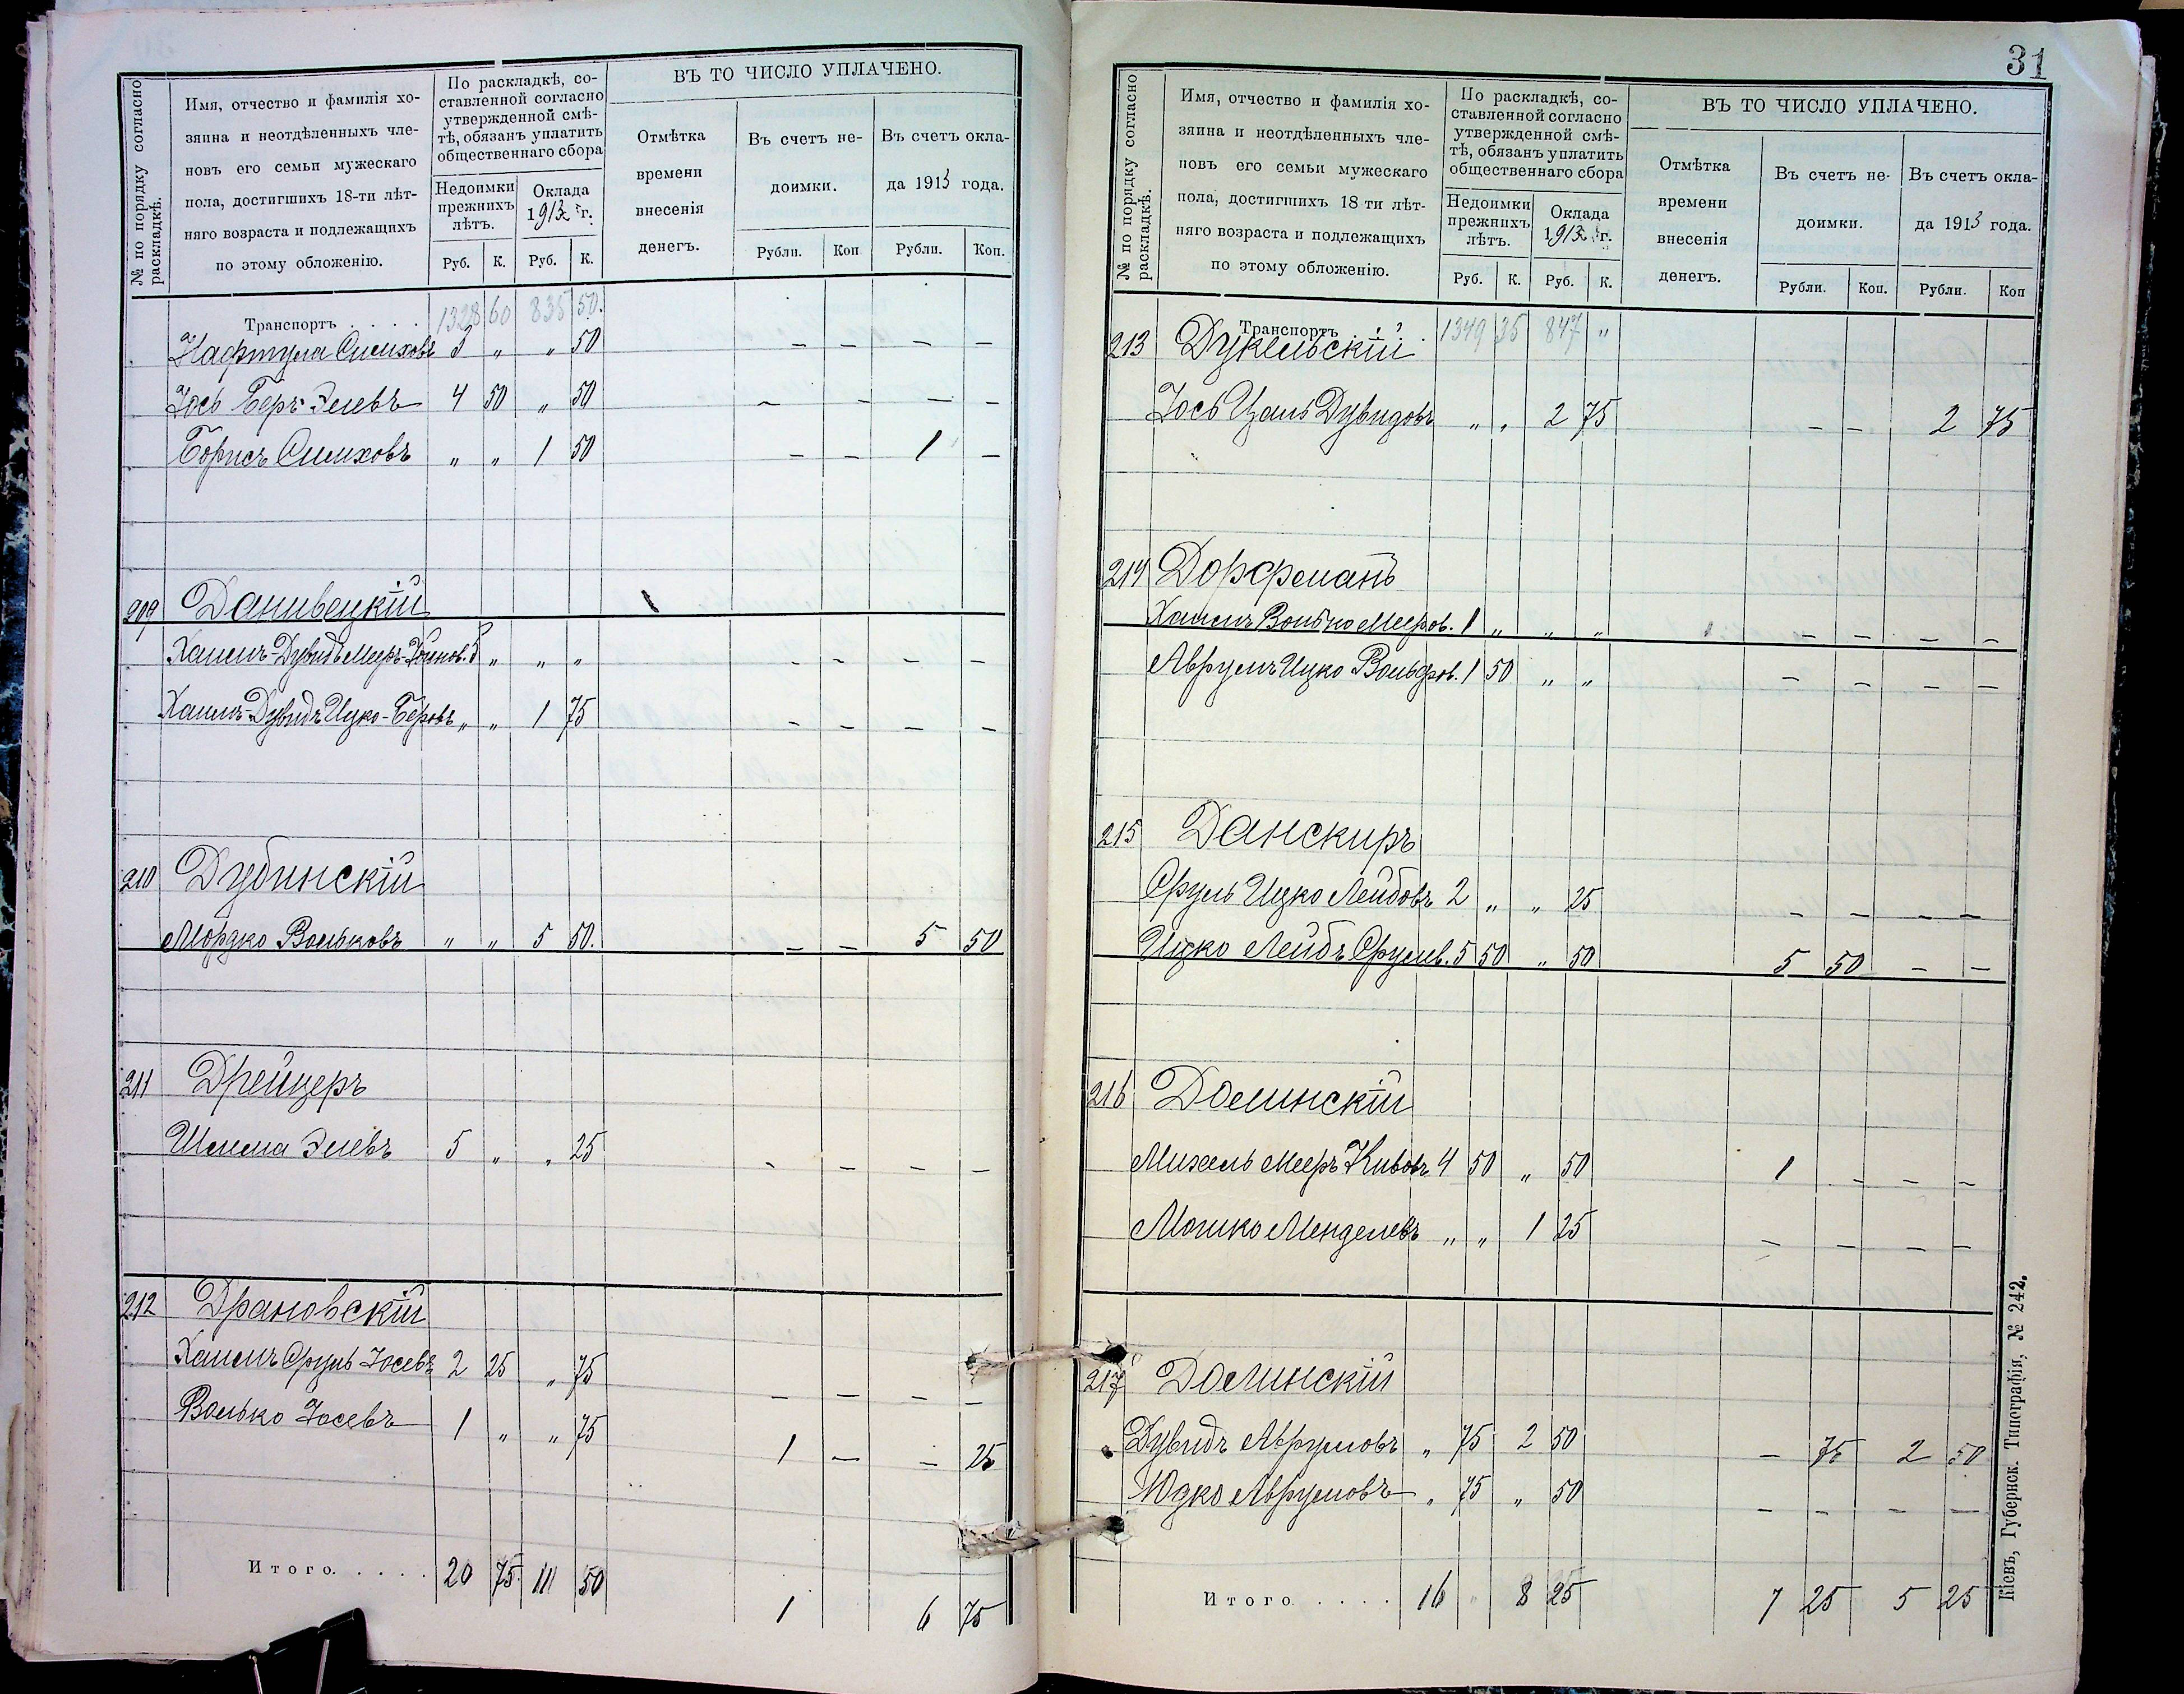 № по порядку согласно раскладкѣ.
Имя, отчество и фамилія хо-
зяина и неотдѣленныхъ чле-
новъ его семьи мужескаго
пола, достигшихъ 18-ти лѣт-
няго возраста и подлежащихъ
по этому обложенію.
По раскладкѣ, со-
ставленной согласно
утвержденной смѣ-
тѣ, обязанъ уплатить
общественнаго сбора
Недоимки
прежнихъ
лѣтъ.
Оклада
1913 г.
Руб. К. Руб. К.
ВЪ ТО ЧИСЛО УПЛАЧЕНО.
Отмѣтка
времени
внесенія
денегъ.
Въ счетъ не-
доимки.
Въ счетъ окла-
да 1913 года.
Рубли. Коп Рубли. Коп.
Транспортъ . . . . 1328 60 835 50.
Нафтула Симховъ 3 „ „ 50 – – – –
Іось Беръ Элевъ 4 50 „ 50 – – – –
Борисъ Симховъ „ „ 1 50 – – 1 –
209 Данивецкій
Хаимъ-Дувидъ Мееръ 5 „ „ „ – – – –
Хаимъ-Дувидъ Ицко-Беровъ „ „ 1 75 – – – –
210 Дубинскій
Мордко Вольковъ „ „ 5 50. – – 5 50
211 Дрейцеръ
Шлема Элевъ 5 „ „ 25 – – – –
212 Драновскій
Хаимъ Сруль Іосевъ 2 25 „ 75 – – – –
Волько Іосевъ 1 „ „ 75 1 – – 25
Итого. . . . . 20 75 11 50 1 6 75
31
№ по порядку согласно раскладкѣ.
Имя, отчество и фамилія хо-
зяина и неотдѣленныхъ чле-
новъ его семьи мужескаго
пола, достигшихъ 18 ти лѣт-
няго возраста и подлежащихъ
по этому обложенію.
По раскладкѣ, со-
ставленной согласно
утвержденной смѣ-
тѣ, обязанъ уплатить
общественнаго сбора
Недоимки
прежнихъ
лѣтъ.
Оклада
1913 г.
Руб. К. Руб. К.
ВЪ ТО ЧИСЛО УПЛАЧЕНО.
Отмѣтка
времени
внесенія
денегъ.
Въ счетъ не-
доимки.
Въ счетъ окла-
да 1913 года.
Рубли. Коп. Рубли. Коп
Транспортъ . . . . 1349 35 847 „
213 Дукельскій
Іось Дувидовъ „ „ 2 75 – – 2 75
214 Дорфманъ
Хаимъ Волько Мееров. 1 „ „ „ – – – –
Аврумъ Ицко Вольфов. 1 50 „ „ – – – –
215 Данскиръ
Сруль Ицко Лейбовъ 2 „ „ 25 – – – –
Ицко Лейбъ Срулев. 5 50 „ 50 5 50 – –
216 Долинскій
Михель Мееръ Кивовъ 4 50 „ 50 1 – – –
Мошко Менделевъ „ „ 1 25 – – – –
217 Долинскій
Дувидъ Аврумовъ „ 75 2 50 – 75 2 50
Юдко Аврумовъ „ 75 „ 50 – – – –
Итого . . . . 16 „ 8 25 7 25 5 25
Кіевъ, Губернск. Типографія, № 242.